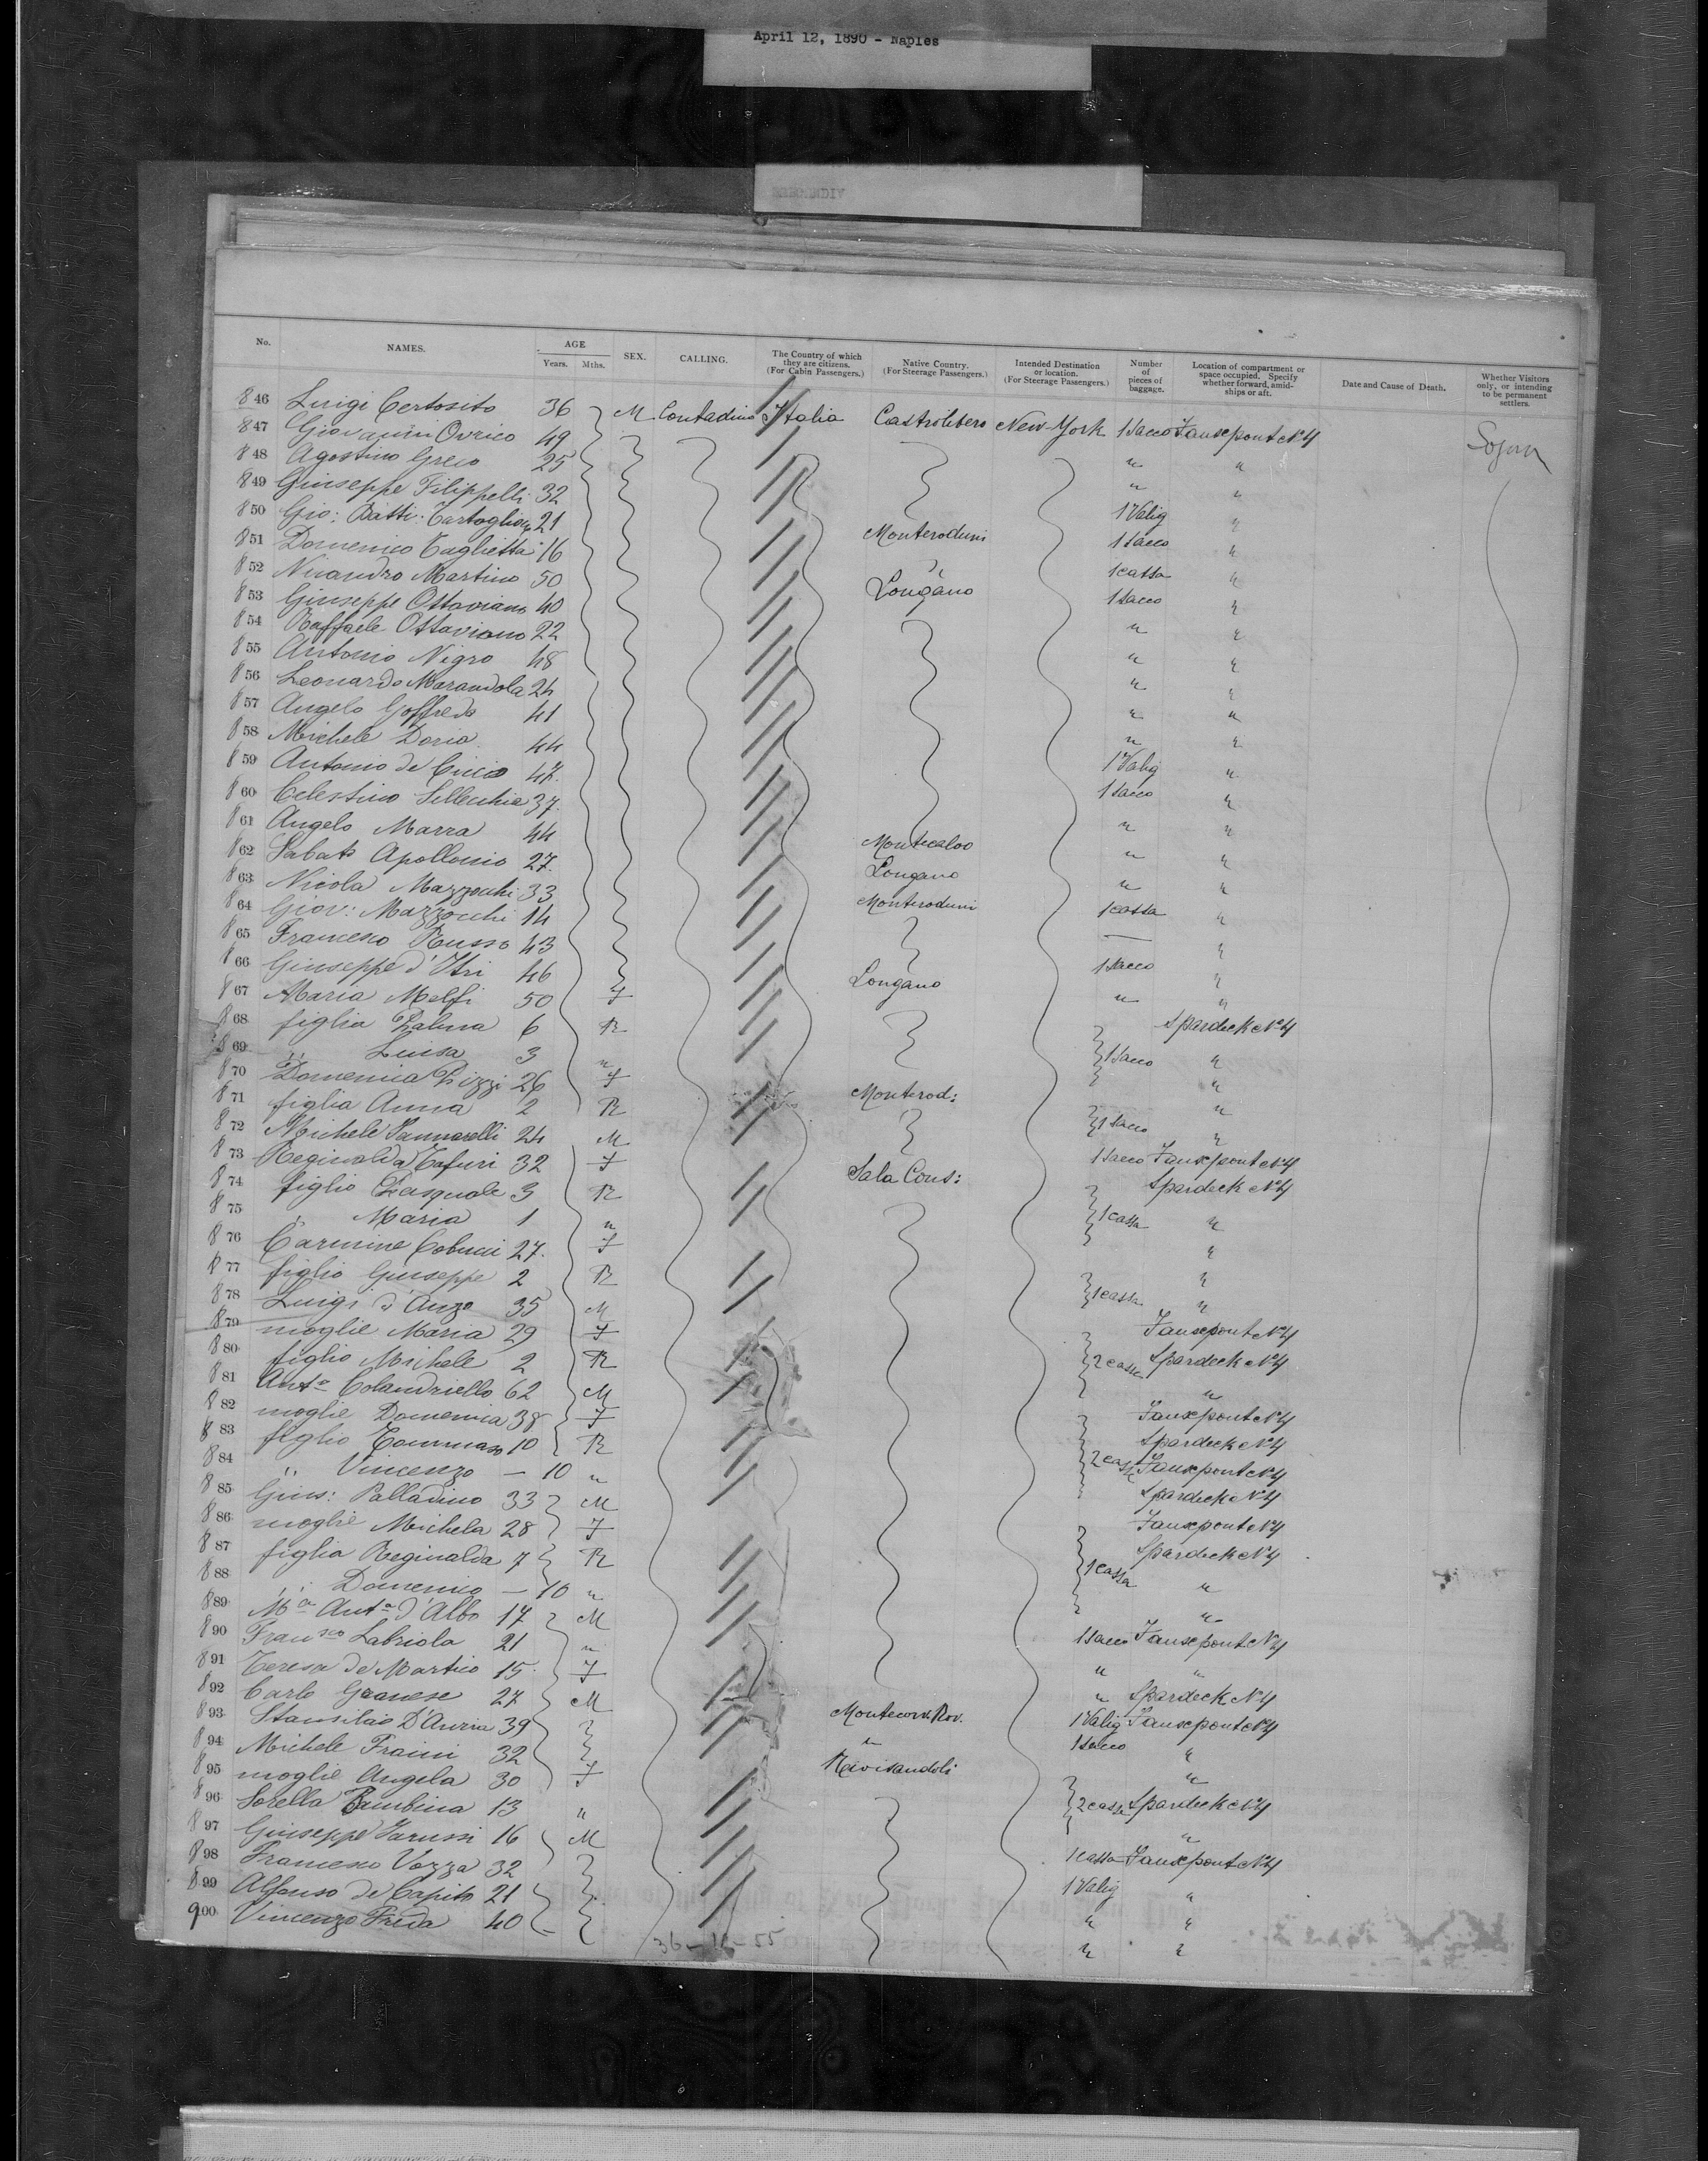 April 12, 1890 - Naples
No. NAMES. AGE Years. Mths. SEX. CALLING. The Country of which they are citizens. (For Cabin Passengers.) Native Country. (For Steerage Passengers.) Intended Destination or location. (For Steerage Passengers.) Number of pieces of baggage. Location of compartment or space occupied. Specify whether forward, amidships or aft. Date and Cause of Death. Whether Visitors only, or intending to be permanent settlers.
846 Luigi Certosito 36 M Contadino Italia Castrolibero New-York 1 Sacco
847 Giovanni Ovrico 49 "
848 Agostino Greco 25 "
849 Giuseppe Filippelli 32 1 Valig "
850 Gio: Batti. 21 Monteroduni 1 Sacco "
851 Domenico Taglietta 16 1 cassa "
852 Nicandro Martino 50 Longano 1 Sacco "
853 Giuseppe Ottaviano 40 " "
854 Raffaele Ottaviano 22 " "
855 Antonio Nigro 48 " "
856 Leonardo Marandola 24 " "
857 Angelo Goffredo 41 " "
858 Michele Doria 44 1 Valig "
859 Antonio de Cicco 47 1 Sacco "
860 Celestino Sellecchia 37 " "
861 Angelo Marra 44 Montecalvo " "
862 Sabato Apollonio 27 Longano " "
863 Nicola Mazzocchi 33 Monteroduni 1 cassa "
864 Giov: Mazzocchi 14 — "
865 Francesco Russo 43 1 Sacco "
866 Giuseppe d'Itri 46 Longano " "
867 Maria Melfi 50 F Spardeck No 4
868 figlia 6 R 1 Sacco "
869 " Luisa 3 " "
870 Domenica Pizzi 26 F Monterod: "
871 figlia Anna 2 R 1 Sacco "
872 Michele Vannarelli 24 M 1 Sacco
873 Reginalda Tafuri 32 F Sala Cons: Spardeck No 4
874 figlio Pasquale 3 R 1 cassa "
875 " Maria 1 " "
876 Carmine Colucci 27 F "
877 figlio Giuseppe 2 R 1 cassa "
878 Luigi d'Anza 35 M
879 moglie Maria 29 F 2 casse Spardeck No 4
880 figlio Michele 2 R "
881 Anto Colandriello 62 M
882 moglie Domenica 38 F Spardeck No 4
883 figlio Tommaso 10 R 2 casse
884 " Vincenzo — 10 " Spardeck No 4
885 Gius: Palladino 33 M
886 moglie Michela 28 F Spardeck No 4
887 figlia Reginalda 7 R 1 cassa "
888 " Domenico — 10 " "
889 Ma Anta d'Albo 17 M 1 Sacco
890 Fransco Labriola 21 " " "
891 Teresa de Martino 15 F " Spardeck No 4
892 Carlo Granese 27 M Montecorv. Rov. 1 Valig
893 Stanislao D'Auria 39 " 1 Sacco "
894 Michele Fraini 32 "
895 moglie Angela 30 F 2 casse Spardeck No 4
896 Sorella Bambina 13 " "
897 Giuseppe Iarussi 16 M 1 cassa
898 Francesco Vozza 32 1 Valig "
899 Alfonso de Capito 21 " "
900 Vincenzo Freda 40 " "